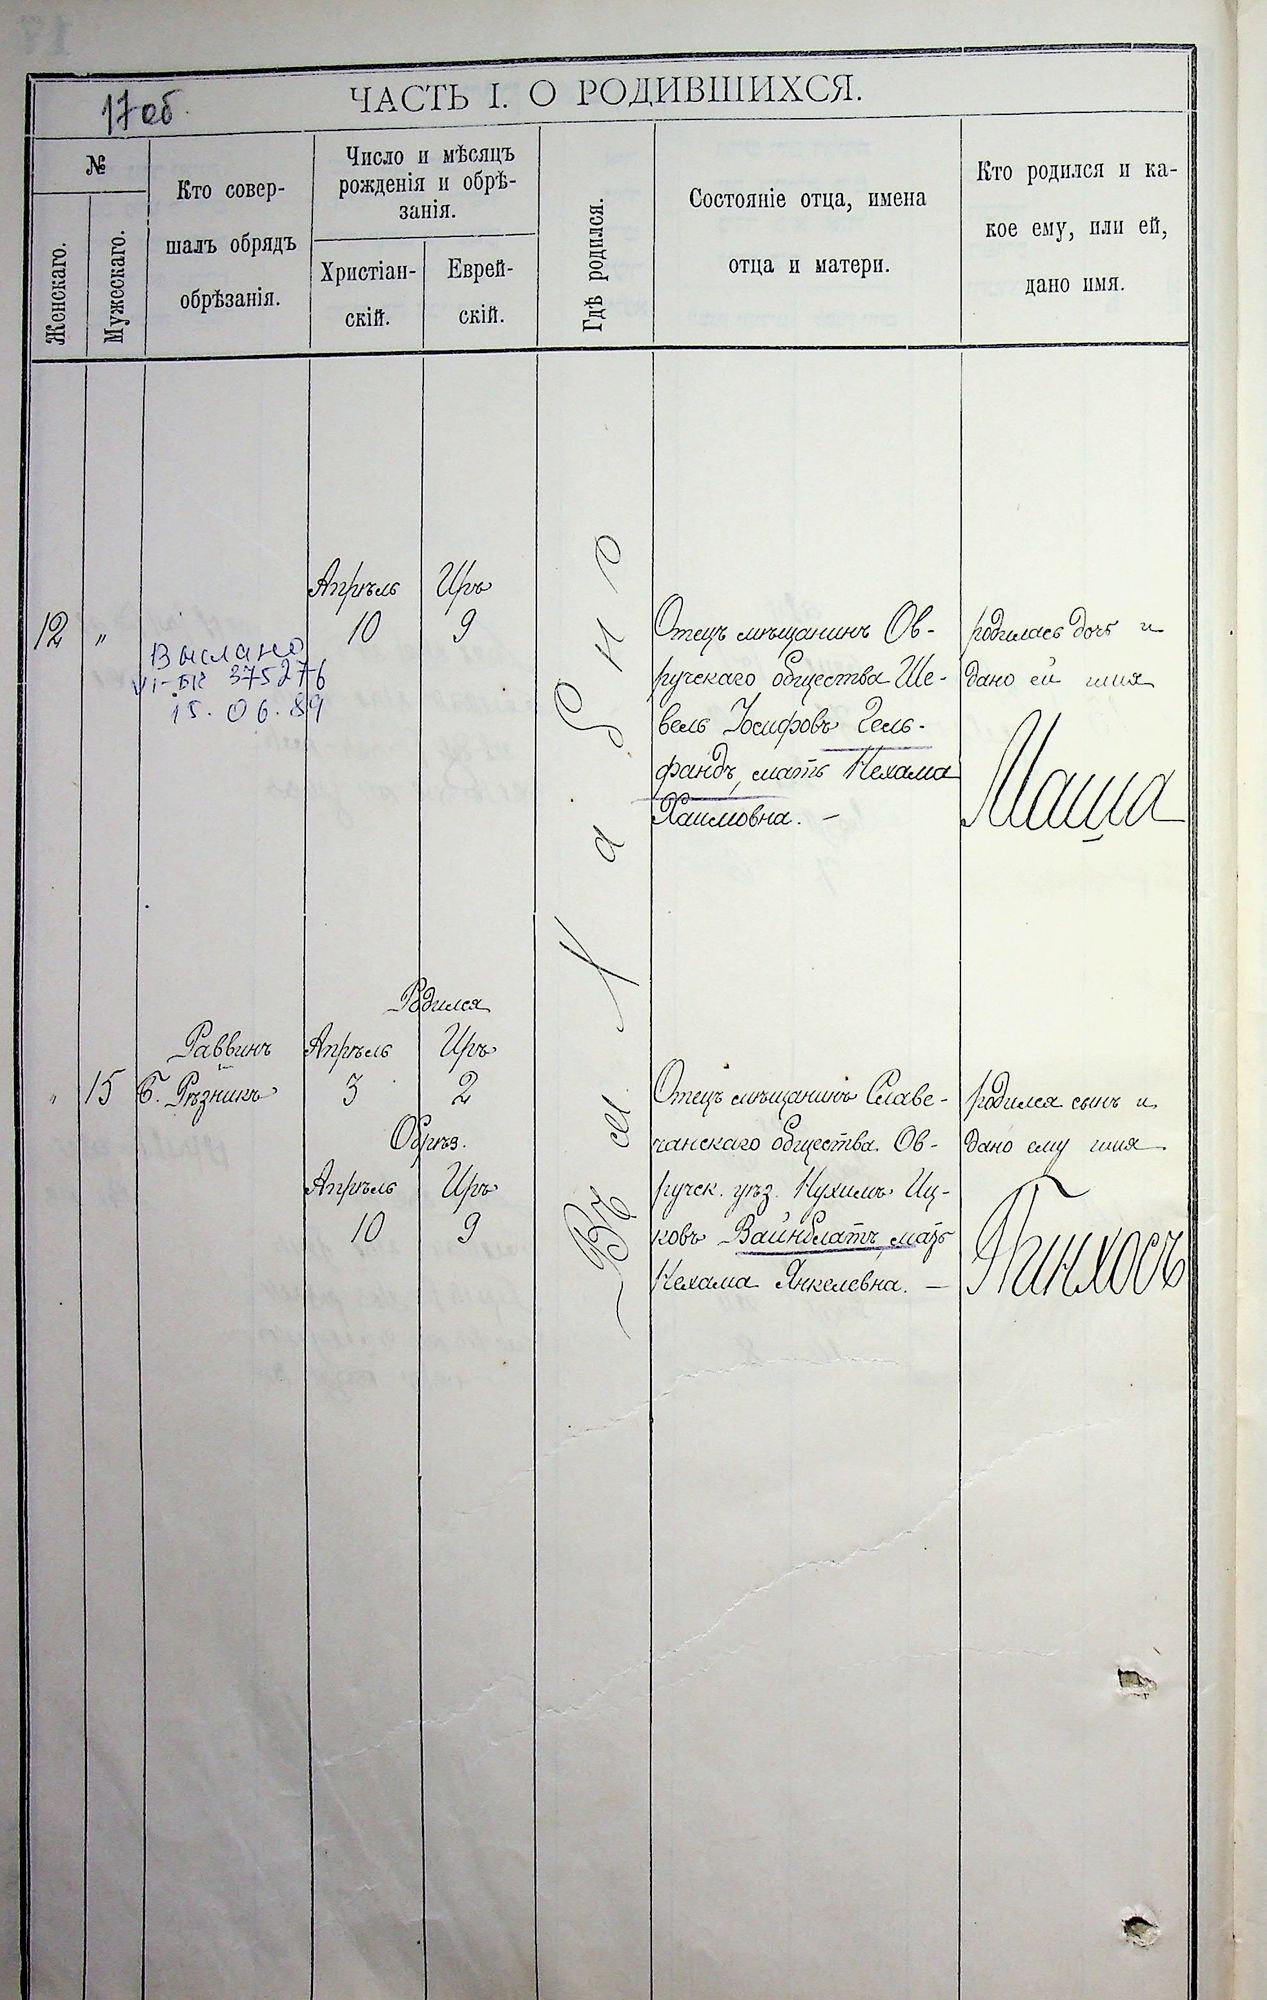 17 об.
ЧАСТЬ I. О РОДИВШИХСЯ.
№
Женскаго.
Мужескаго.
Кто совер-
шалъ обрядъ
обрѣзанія.
Число и мѣсяцъ
рожденія и обрѣ-
занія.
Христіан-
скій.
Еврей-
скій.
Гдѣ родился.
Состояніе отца, имена
отца и матери.
Кто родился и ка-
кое ему, или ей,
дано имя.
Въ м.
12
"
Выслано
VI-БК 375276
15.06.89
Апрѣль
10
Иръ
9
Отецъ мѣщанинъ Ов-
ручскаго общества Ше-
вель Іосифовъ Гель-
фандъ, мать Нехама
Хаимовна. —
родилась дочь и
дано ей имя
Маша
"
15
Раввинъ
Б. Рѣзникъ
Родился
Апрѣль
3
Иръ
2
Обрѣз.
Апрѣль
10
Иръ
9
Отецъ мѣщанинъ Славе-
чанскаго общества Ов-
ручск. уѣз. Нухимъ Иц-
ковъ Вайнблатъ, мать
Нехама Янкелевна. —
родился сынъ и
дано ему имя
Пинхосъ